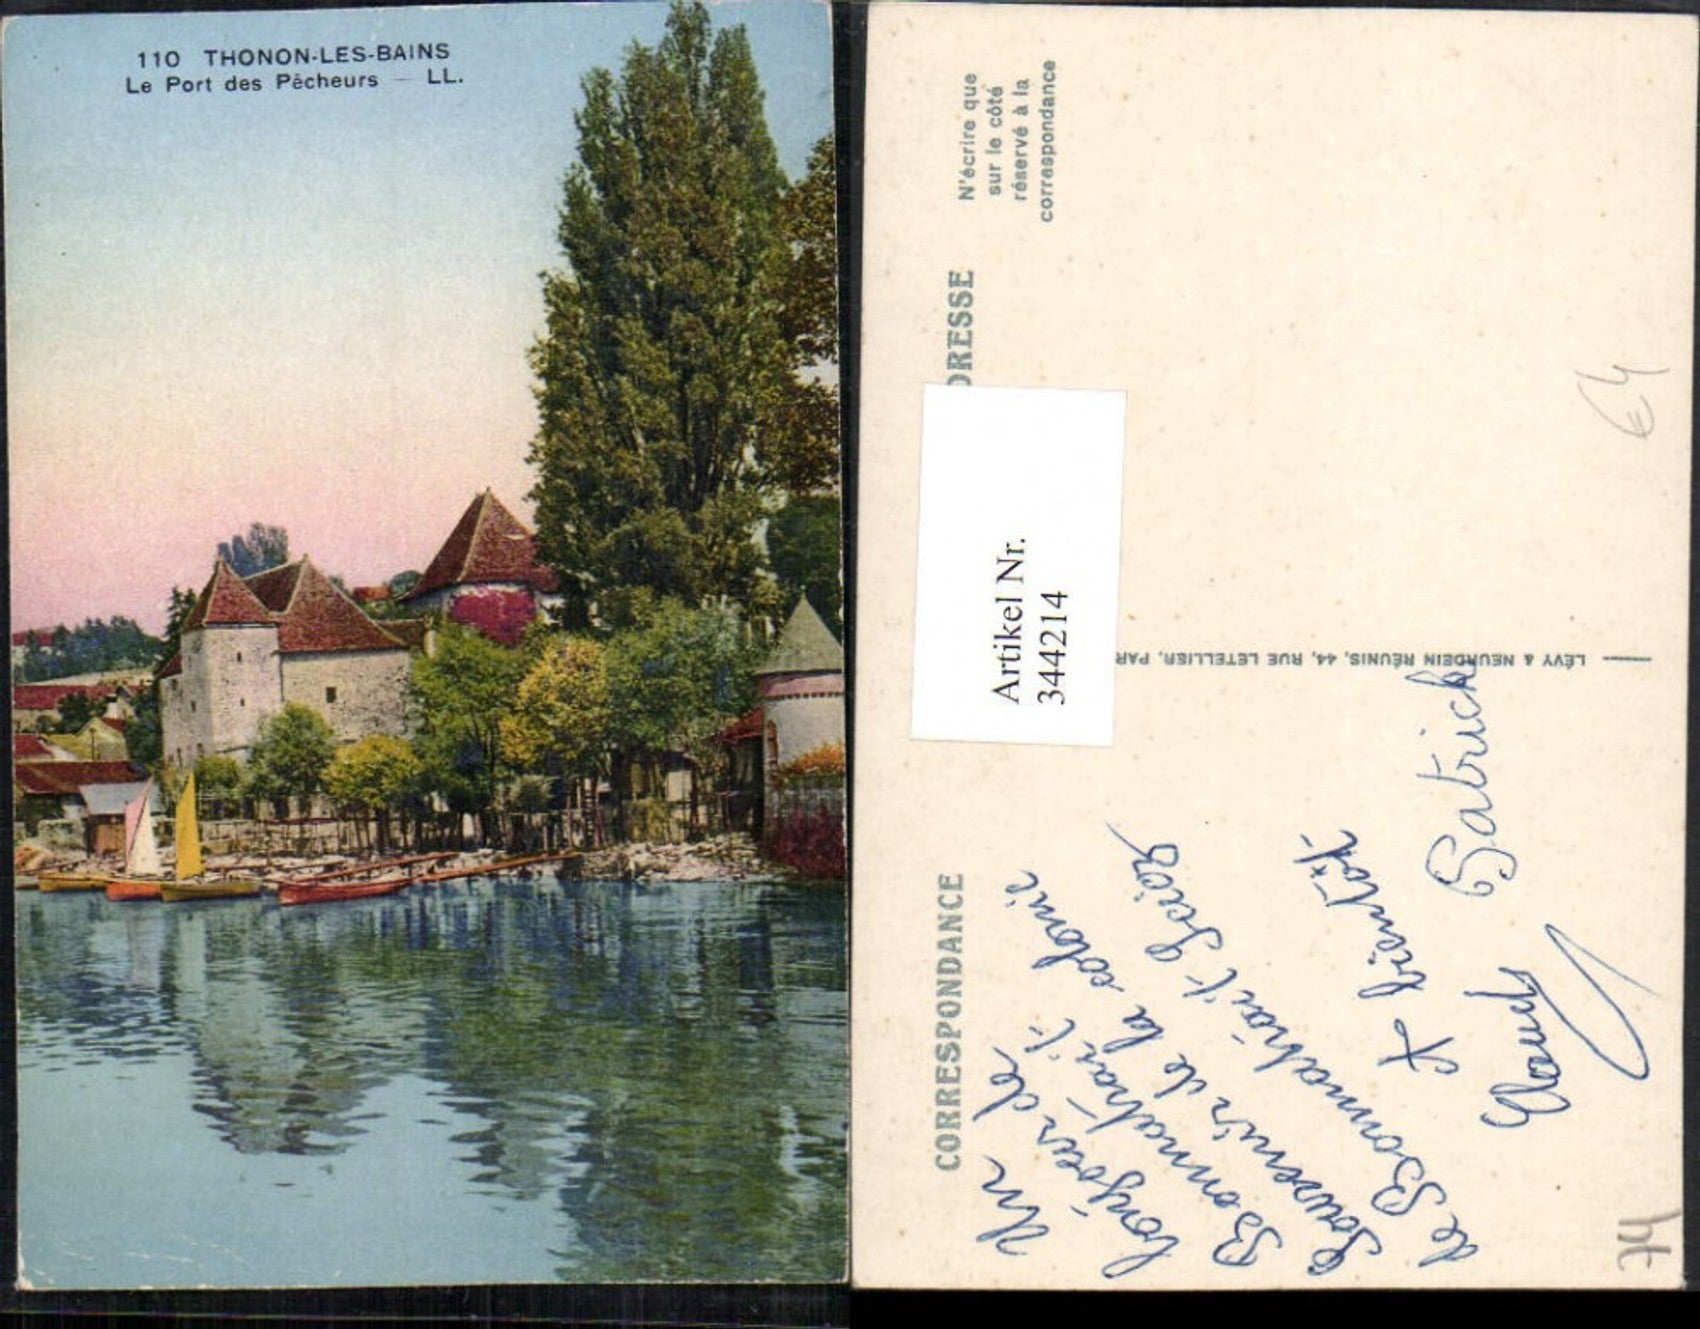 110 THONON-LES-BAINS
Le Port des Pêcheurs — LL.
N'écrire que
sur le côté
réservé à la
correspondance
DRESSE
Artikel Nr.
344214
LÉVY & NEURDEIN RÉUNIS, 44, RUE LETELLIER, PAR
CORRESPONDANCE
Un
bonjour de
Bonnatrait
Souvenir de la colonie
de Bonnatrait Sciez
A bientôt
Claude Patrick
€4
74